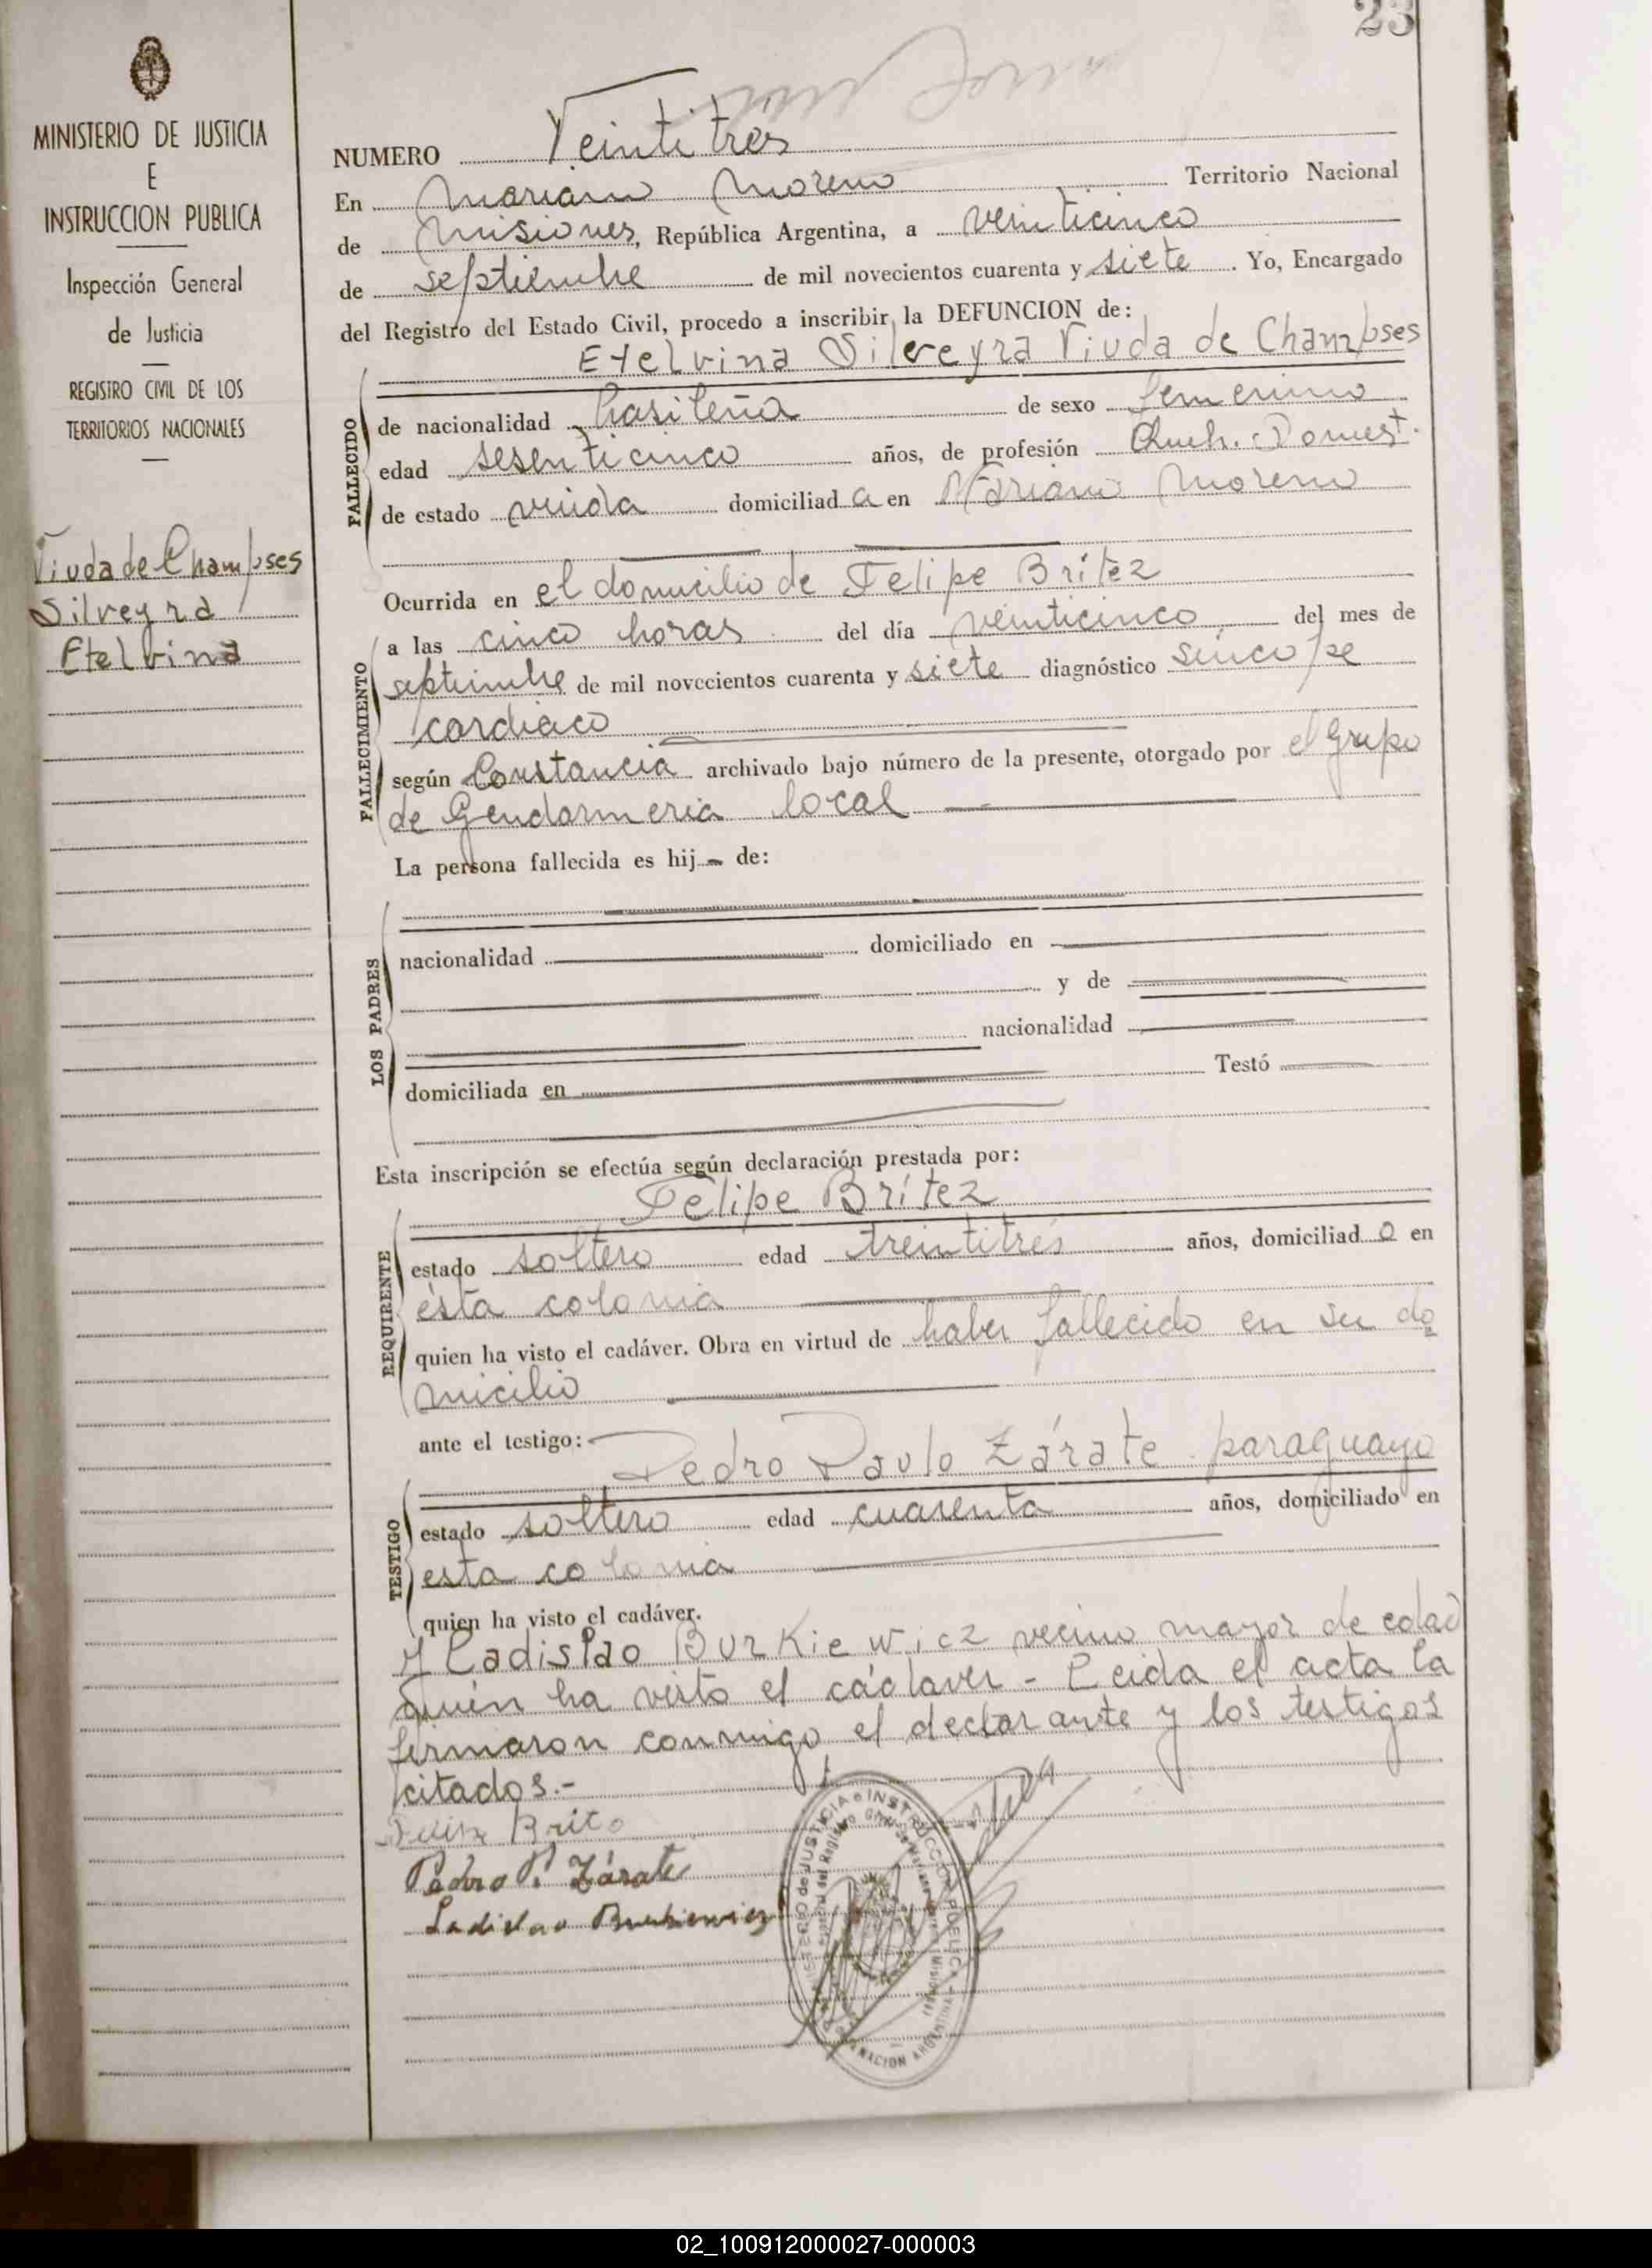 23
MINISTERIO DE JUSTICIA
E
INSTRUCCION PUBLICA
Inspección General
de Justicia
REGISTRO CIVIL DE LOS
TERRITORIOS NACIONALES
Viuda de Champses
Silveyra
Etelvina
NUMERO Veintitres
En Mariano Moreno Territorio Nacional
de Misiones, República Argentina, a veinticinco
de septiembre de mil novecientos cuarenta y siete. Yo, Encargado
del Registro del Estado Civil, procedo a inscribir la DEFUNCION de:
Etelvina Silveyra Viuda de Champses
FALLECIDO
de nacionalidad brasileña de sexo femenino
edad sesenticinco años, de profesión Queh. Domest.
de estado viuda domiciliada en Mariano Moreno
Ocurrida en el domicilio de Felipe Brítez
FALLECIMIENTO
a las cinco horas del día veinticinco del mes de
septiembre de mil novecientos cuarenta y siete diagnóstico síncope
cardíaco
según Constancia archivado bajo número de la presente, otorgado por el Grupo
de Gendarmeria local
La persona fallecida es hij- de:
LOS PADRES
nacionalidad domiciliado en
y de
nacionalidad
domiciliada en Testó
Esta inscripción se efectúa según declaración prestada por:
Felipe Brítez
REQUIRENTE
estado soltero edad treintitrés años, domiciliado en
ésta colonia
quien ha visto el cadáver. Obra en virtud de haber fallecido en su do
micilio
ante el testigo:
Pedro Paulo Zárate paraguayo
TESTIGO
estado soltero edad cuarenta años, domiciliado en
esta colonia
quien ha visto el cadáver.
y Ladislao Burkiewicz vecino mayor de edad
quién ha visto el cádaver - Leida el acta la
firmaron conmigo el declarante y los testigos
citados.-
Brito
Pedro P. Zárate
Ladislao Burkiewicz
MINISTERIO de JUSTICIA e INSTRUCCION PUBLICA
NACION ARGENTINA
02_100912000027-000003